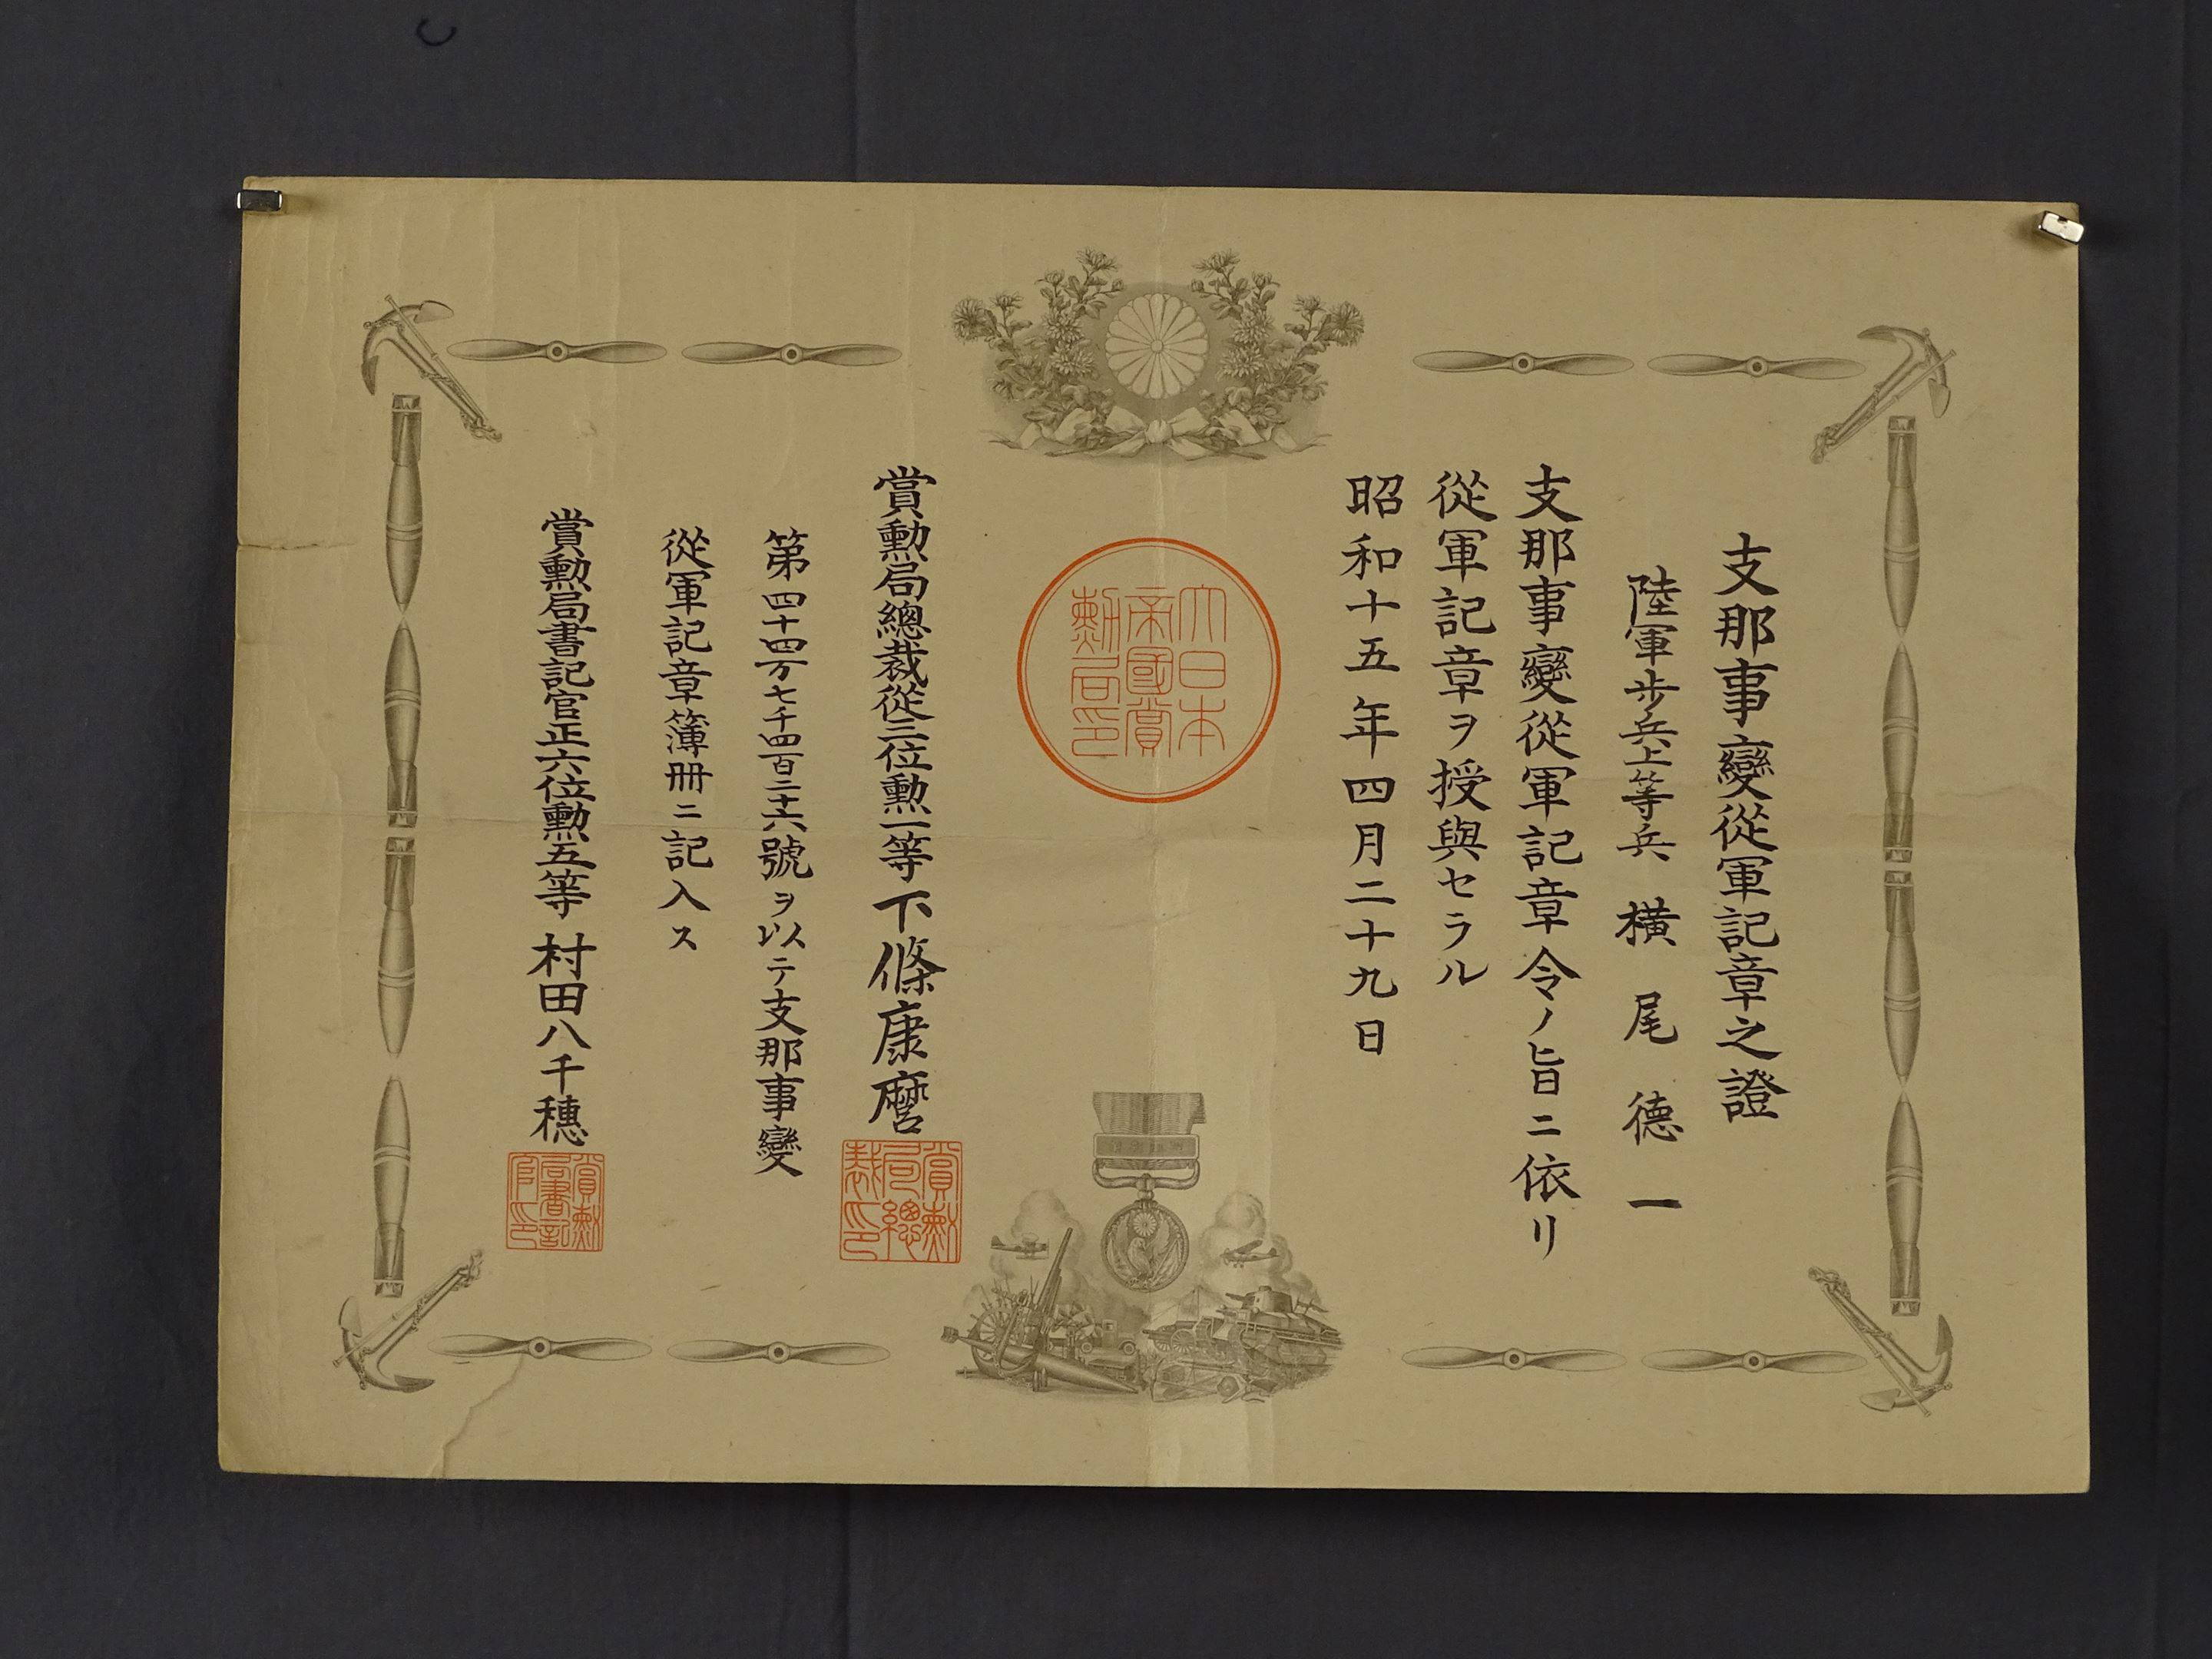 支那事變從軍記章之證
陸軍歩兵上等兵 横尾德一
支那事變從軍記章令ノ旨ニ依リ
從軍記章ヲ授與セラル
昭和十五年四月二十九日
大日本
帝國賞
勲局印
賞勲局總裁從三位勲一等下條康麿
賞勲
局總
裁印
第四十四万七千四百二十六號ヲ以テ支那事變
從軍記章簿冊ニ記入ス
賞勲局書記官正六位勲五等村田八千穗
賞勲
局書記
官印